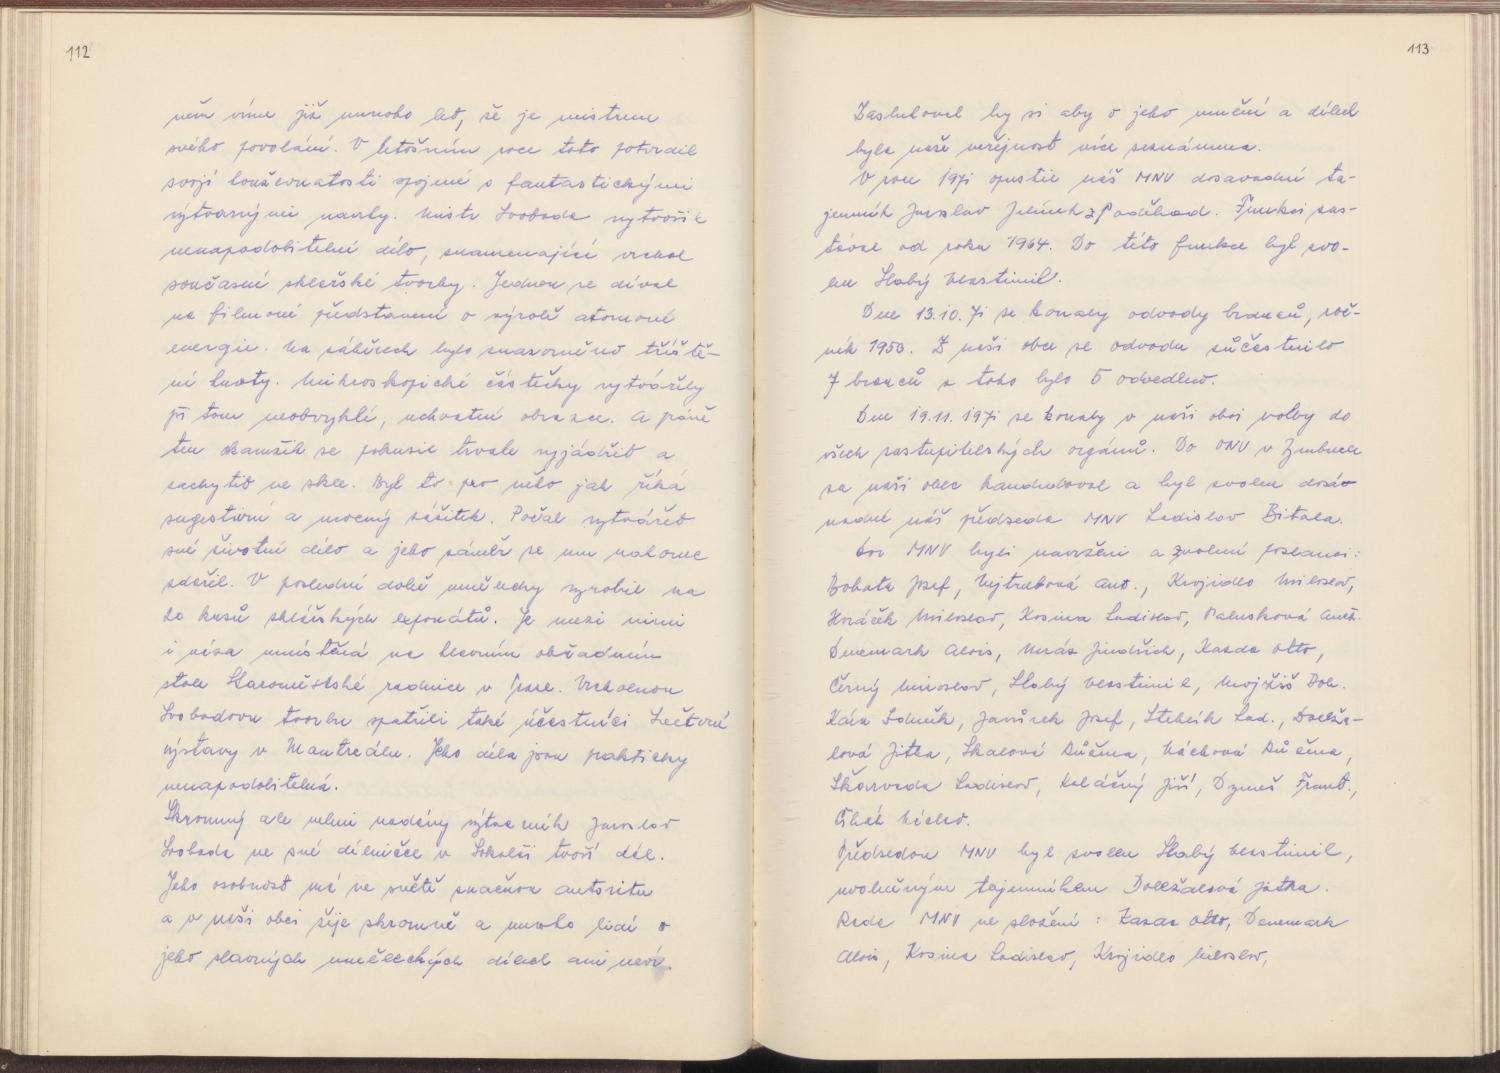 112
něm víme již mnoho let, že je mistrem
svého povolání. V letošním roce toto potvrdil
svojí houževnatostí spojené s fantastickými
výtvarnými návrhy. Mistr Svoboda vytvořil
nenapodobitelné dílo, znamenající vrchol
současné sklářské tvorby. Jednou se díval
na filmové představení o výrobě atomové
energie. Na záběrech bylo znázorněno tříště-
ní hmoty. Mikroskopické částečky vytvářely
při tom neobvyklé, úchvatné obrazce. A právě
ten okamžik se pokusil trvale vyjádřit a
zachytit ve skle. Byl to pro něho jak říká
sugestivní a mocný zážitek. Počal vytvářet
své životní dílo a jeho záměr se mu nakonec
zdařil. V poslední době umělecky vyrobil na
sto kusů sklářských exponátů. Je mezi nimi
i váza umístěná na hlavním obřadním
stole Staroměstské radnice v Praze. Vrcholnou
Svobodovu tvorbu spatřili také účastníci Světové
výstavy v Montreálu. Jeho díla jsou prakticky
nenapodobitelná.
Skromný ale velmi nadaný výtvarník Jaroslav
Svoboda ve své dílničce v Sokolči tvoří dál.
Jeho osobnost má ve světě značnou autoritu
a v naší obci žije skromně a mnoho lidí o
jeho slavných uměleckých dílech ani neví.
113
Zasluhoval by si aby o jeho umění a dílech
byla naše veřejnost více seznámena.
V roce 1971 opustil náš MNV dosavadní ta-
jemník Jaroslav Jelínek z Poděbrad. Funkci zas-
tával od roku 1964. Do této funkce byl zvo-
len Slabý Vlastimil.
Dne 13.10.71 se konaly odvody branců, roč-
ník 1953. Z naší obce se odvodu zúčastnilo
7 branců z toho bylo 5 odvedeno.
Dne 19.11. 1971 se konaly v naší obci volby do
všech zastupitelských orgánů. Do ONV v Nymburce
za naši obec kandidoval a byl zvolen dosa-
vadní náš předseda MNV Ladislav Bitala.
Do MNV byli navrženi a zvoleni poslanci:
Bohata Josef, Vejtrubová Ant., Krojidlo Miloslav,
Horáček Miloslav, Kosina Ladislav, Palusková Anež.
Denemark Alois, Mráz Jindřich, Kazda Otto,
Černý Miroslav, Slabý Vlastimil, Mojžíš Boh.
Káza Zdeněk, Janůrek Josef, Stehlík Lad., Doleža-
lová Jitka, Skalová Růžena, Váchová Růžena,
Škarvada Ladislav, Koláčný Jiří, Dymeš Frant.,
Čihák Václav.
Předsedou MNV byl zvolen Slabý Vlastimil,
uvolněným tajemníkem Doležalová Jitka.
Rada MNV ve složení: Kazda Otto, Denemark
Alois, Kosina Ladislav, Krojidlo Miloslav,